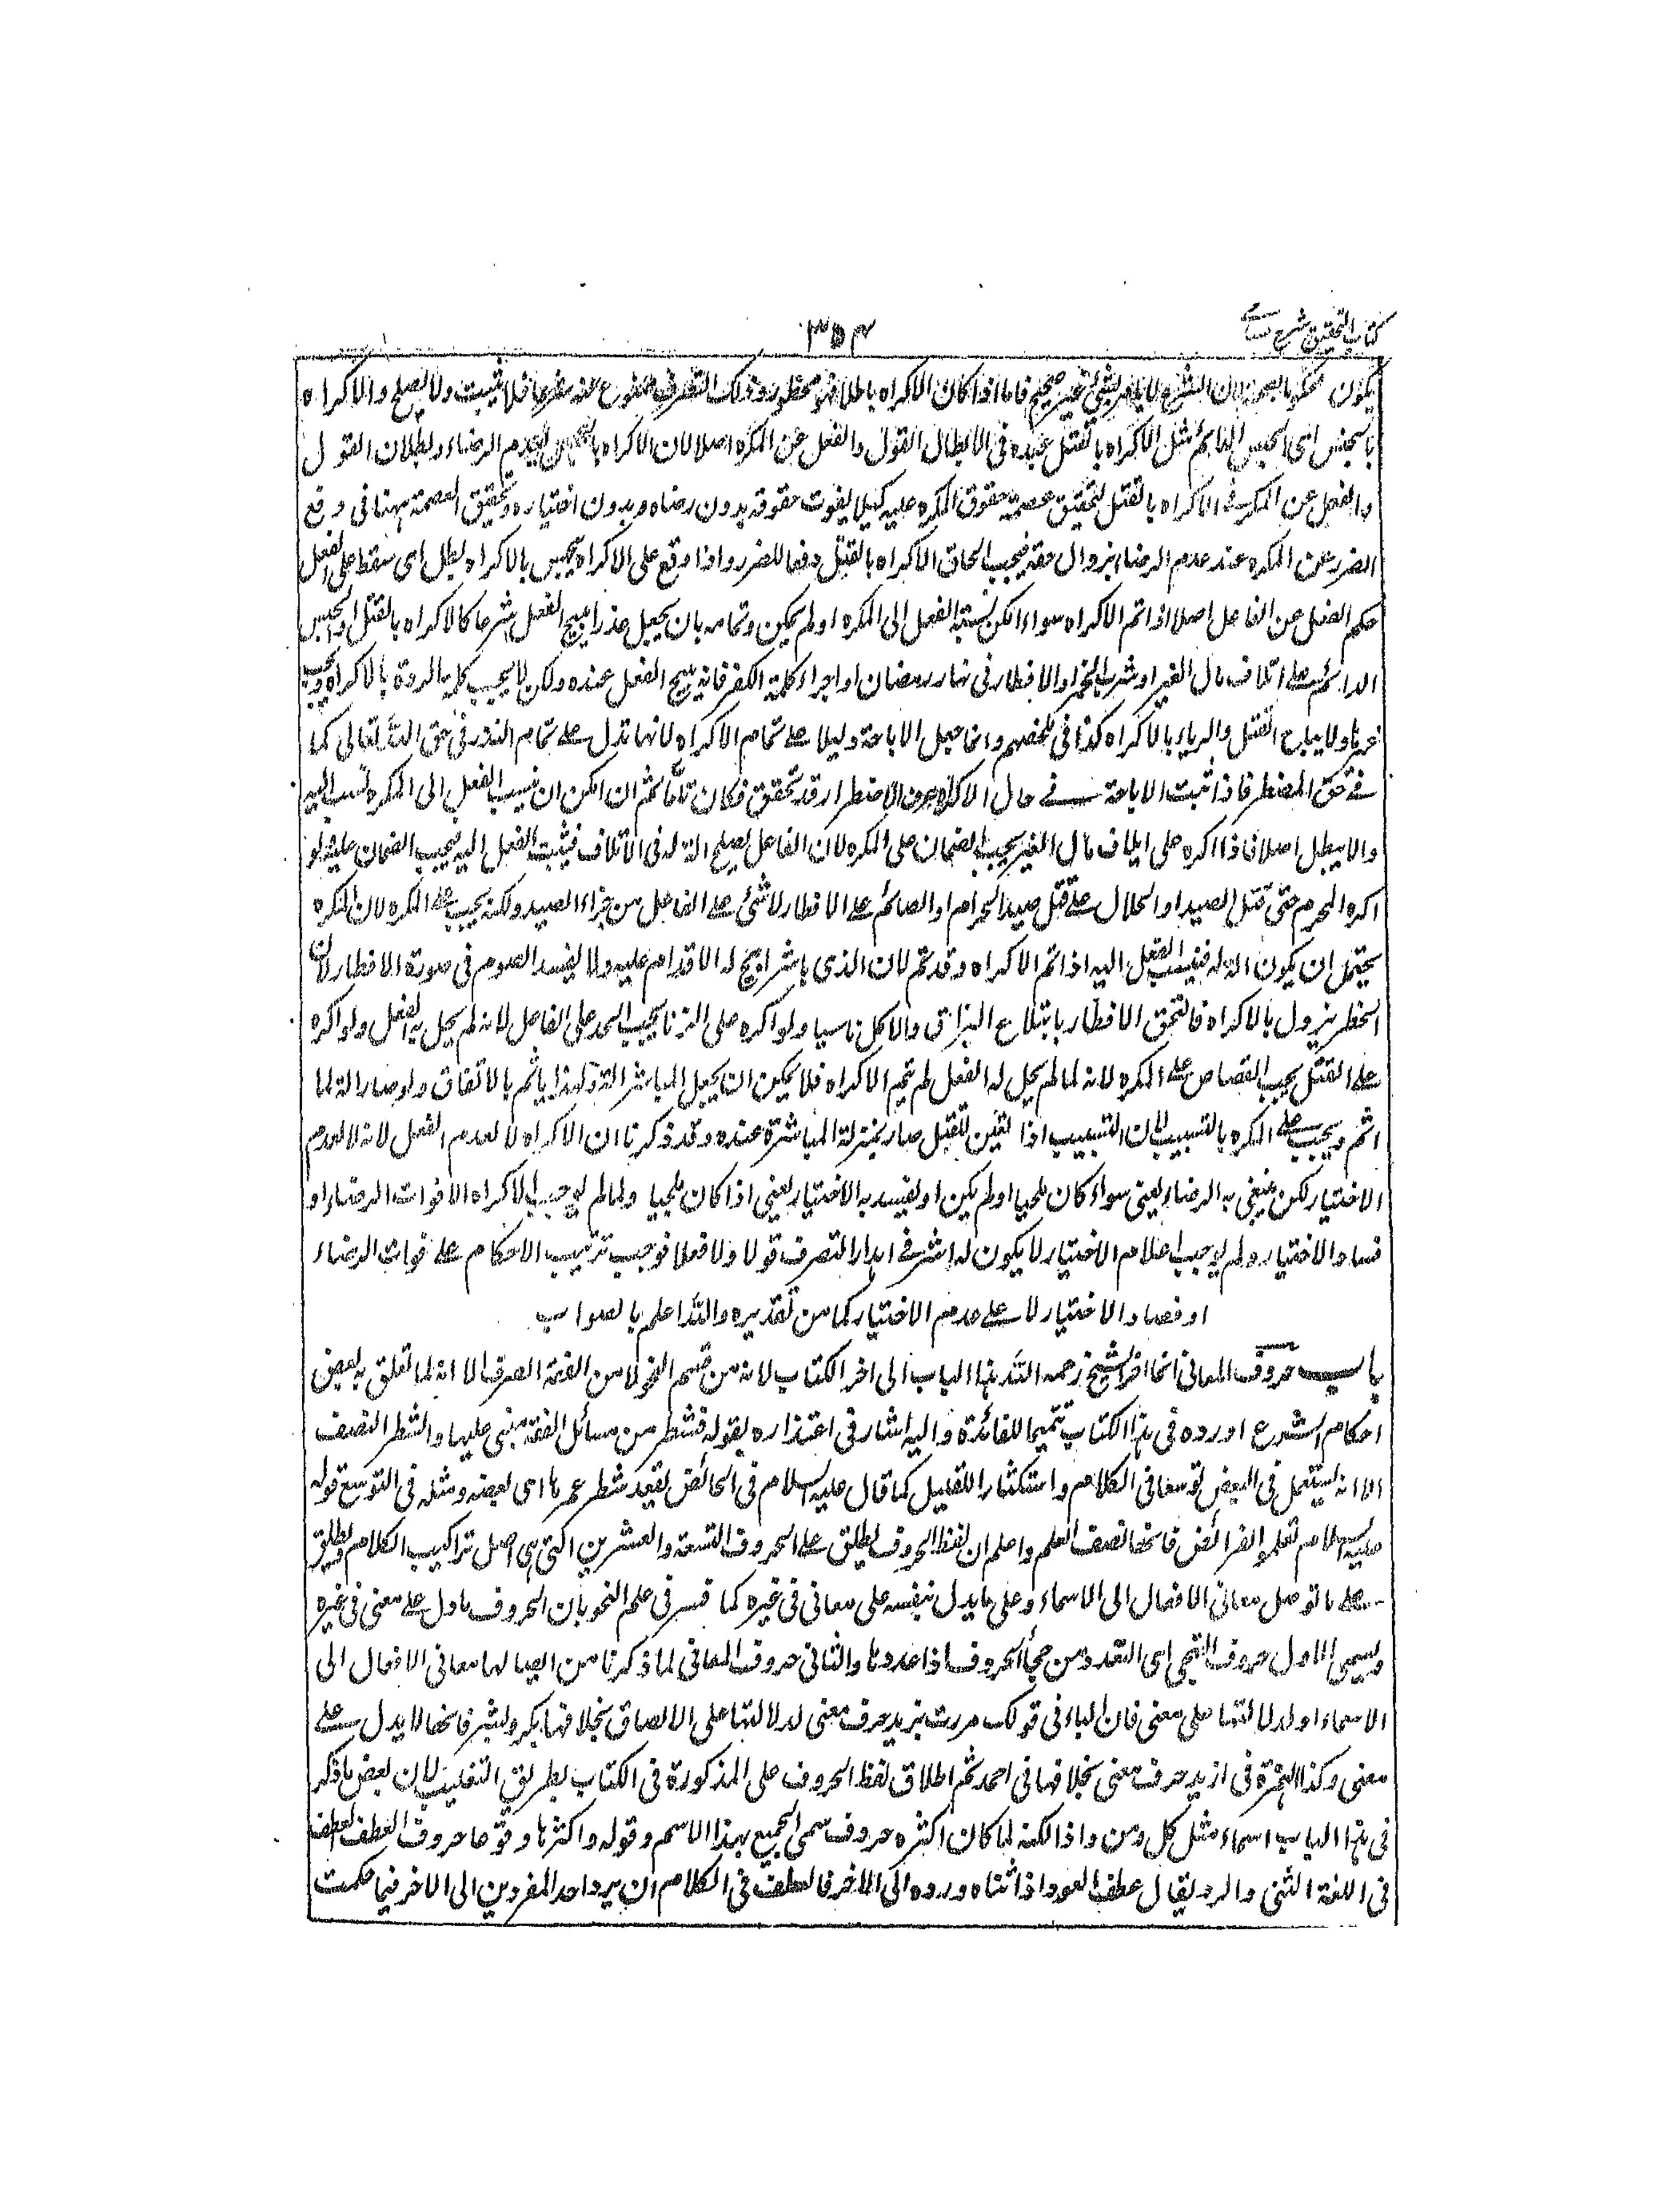 كتاب التحقيق شرح
٣٥٤
يكون محكوما بصحته لان الشرع لا يامر بشئ غير صحيح فاما اذا كان الاكراه باطلا فهو محظور وذلك التصرف ممنوع عنه شرعا فلا يثبت ولا يصلح والاكراه
بالحبس اى الحبس الدائم مثل الاكراه بالقتل عنده فى الابطال القول والفعل عن المكره اصلا لان الاكراه بالحبس يعدم الرضاء وبطلان القول
والفعل عن المكره فى الاكراه بالقتل لتحقيق عصمة حقوق المكره عليه كيلا يفوت حقوقه بدون رضاه وبدون اختياره وتحقيق العصمة ههنا فى دفع
الضرر عن المكره عند عدم الرضاء بزوال حقه فيجب الحاق الاكراه بالقتل دفعا للضرر واذا وقع على الاكراه بالاكراه بطل اى سقط على الفعل
حكم الفعل عن الفاعل اصلا اذا تم الاكراه سواء امكن نسبة الفعل الى المكره او لم يمكن وتمامه بان يجعل عذرا يبيح الفعل شرعا كالاكراه بالقتل او الحبس
الدائم على اتلاف مال الغير او شرب الخمر او الافطار فى نهار رمضان او اجراء كلمة الكفر فانه يبيح الفعل عنده ولكن لا يجب كلمة الردة بالاكراه
ولا يباح القتل والزناء بالاكراه كذا فى ملخصهم وانما جعل الاباحة دليلا على تمام الاكراه لانها تدل على تمام العذر فى حق الله تعالى كما
فى حق المضطر فاذا ثبت الاباحة فى حال الاكراه الاضطرار قد تحقق فكان تاما ثم ان امكن ان ينسب الفعل الى المكره نسب اليه
والا يبطل اصلا فاذا اكره على اتلاف مال الغير يجب الضمان على المكره لان الفاعل يصلح آلة له فى الاتلاف فيثبت الفعل اليه فيجب الضمان عليه ولو
اكره المحرم حتى قتل الصيد او الحلال على قتل صيد الحرام او الصائم على الافطار لا شئ على الفاعل من جزاء الصيد ولكنه يجب على المكره لان المكره
يحتمل ان يكون آلة له فينسب الفعل اليه اذا تم الاكراه وقد تم لان الذى باشر ابيح له الاقدام عليه ولا يفسد الصوم فى صورة الافطار لان
الحظر يزول بالاكراه فالتحق الافطار بابتلاع البزاق والاكل ناسيا ولو اكره على الزنا يجب الحد على الفاعل لانه لم يحل به الفعل ولو اكره
على القتل يجب القصاص على المكره لانه لما لم يحل له الفعل لم يتم الاكراه فلا يمكن ان يجعل المباشر آلة ولهذا ياثم بالاتفاق ولو صار آلة لما
اثم ويجب على المكره بالتسبيب لان التسبيب اذا تعين للقتل صار بمنزلة المباشرة عنده وقد ذكرنا ان الاكراه لا يعدم الفعل لانه لا يعدم
الاختيار لكن ينتفى به الرضاء يعنى سواء كان ملجيا او لم يكن او يفسد به الاختيار يعنى اذا كان ملجيا ولما لم يوجب الاكراه الا فوات الرضاء او
فساد الاختيار ولم يوجب اعدام الاختيار لا يكون له اثر فى اهدار التصرف قولا ولا فعلا فوجب ترتيب الاحكام على فوات الرضاء
او فساد الاختيار لا على عدم الاختيار كما من تقديره والله اعلم بالصواب
باب حروف المعانى انما اخر الشيخ رحمه الله هذا الباب الى اخر الكتاب لانه من قسم النحو لا من الفقه الصرف الا انه لما تعلق به بعض
احكام الشرع اورده فى هذا الكتاب تتميما للفائدة واليه اشار فى اعتذاره بقوله فشطر من مسائل الفقه مبنى عليها والشطر النصف
الا انه يستعمل فى البعض توسعا فى الكلام واستكثارا للقليل كما قال عليه السلام فى الحائض تقعد شطر عمرها اى بعضه ومثله فى التوسع قوله
عليه السلام تعلموا الفرائض فانها نصف العلم واعلم ان لفظ الحروف يطلق على الحروف التسعة والعشرين التى هى اصل تراكيب الكلام ويطلق
على ما توصل معانى الافعال الى الاسماء وعلى ما يدل بنفسه على معانى فى غيره كما فسر فى علم النحو بان الحروف ما دل على معنى فى غيره
ويسمى الاول حروف التهجى اى التعدد من هجأ الحروف اذا عدوها والثانى حروف المعانى لما ذكرنا من ايصالها معانى الافعال الى
الاسماء او لدلالتها على معنى فان الباء فى قولك مررت بزيد حرف معنى لدلالتها على الالصاق بخلافها بكر وبشر فانها لا يدل على
معنى وكذا الهمزة فى ازيد حرف معنى بخلافها فى احمد ثم اطلاق لفظ الحروف على المذكورة فى الكتاب بطريق التغليب لان بعض ما ذكر
فى هذا الباب اسماء مثل كل ومن واذا لكنه لما كان اكثره حروف سمى الجميع بهذا الاسم وقوله واكثرها وقوعا حروف العطف العطف
فى اللغة الثنى والرد يقال عطف العود اذا ثناه ورده الى الاخر فالعطف فى الكلام ان يرد احد المفردين الى الاخر فيما حكمت